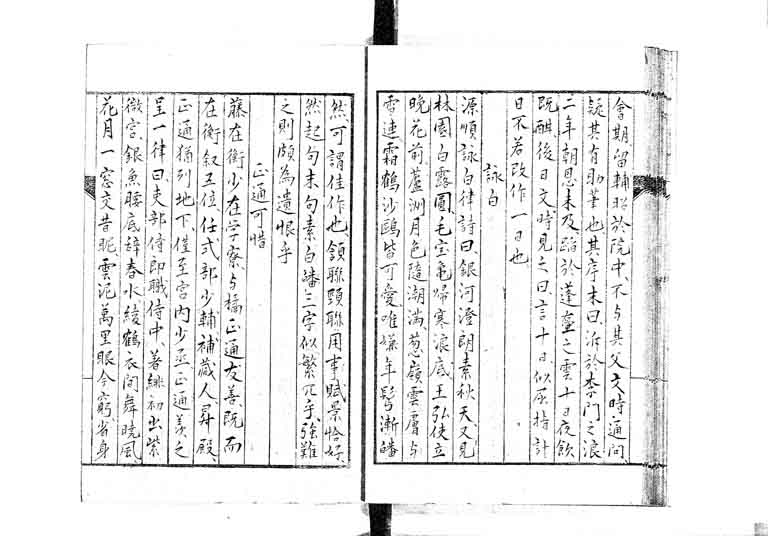 會期、留輔昭於院中、不与其父文時通問、
疑其有助筆也、其序末曰、泝於李門之浪
二年朝恩未及、蹈於蓬壷之雲十日夜飲
既酣、後日文時見之曰、言十日、似屈指計
日不若改作一日也
詠白
源順詠白律詩曰、銀河澄朗素秋天、又見
林園白露圓、毛宝亀帰寒浪底、王弘使立
晩花前、蘆洲月色隨潮満、葱嶺雲膚与
雪連、霜鶴沙鷗皆可愛、唯嫌年鬢漸皤
然、可謂佳作也、頷聯頸聯用事賦景恰好、
然起句末句素白皤三字似繁冗乎、強難
之則頗為遺恨乎
正通可惜
藤在衡少在学寮、与橘正通友善、既而
在衡叙五位、任式部少輔補蔵人、昇殿、
正通猶列地下、僅至宮内少丞、正通羨之
呈一律曰、吏部侍郎職侍中、著緋初出紫
微宮、銀魚腰底辞春水、綾鶴衣間舞暁風
花月一窓交昔昵、雲泥萬里眼今窮、省身